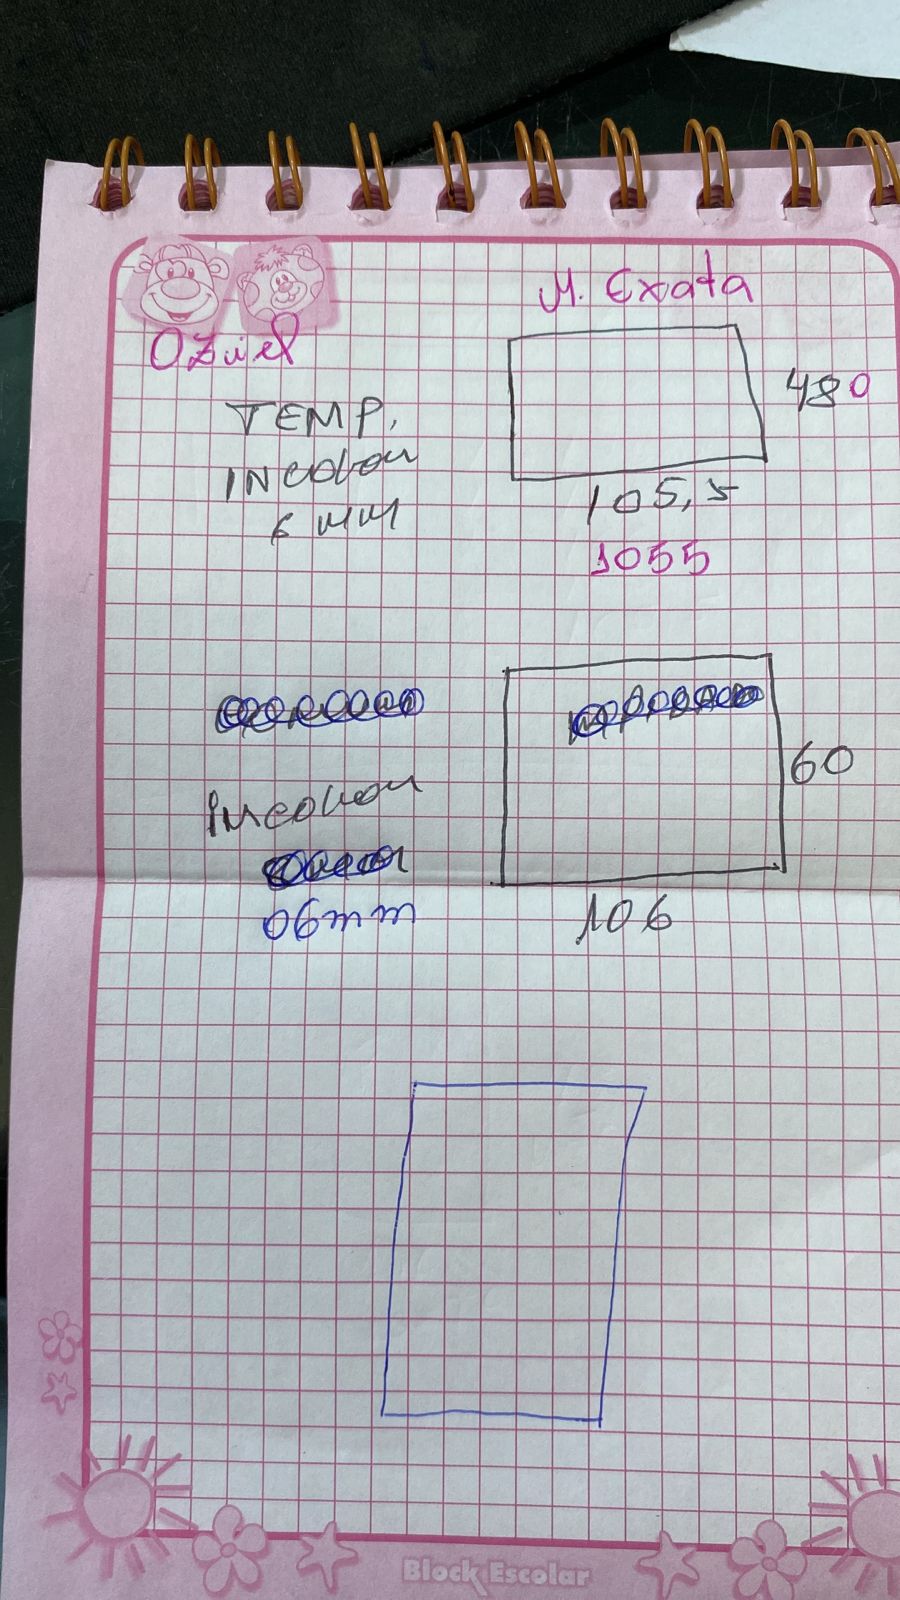 M. Exata
Oziel
TEMP.
INcolor
6 MM
480
105,5
1055
INcolor
60
06mm
106
Block Escolar